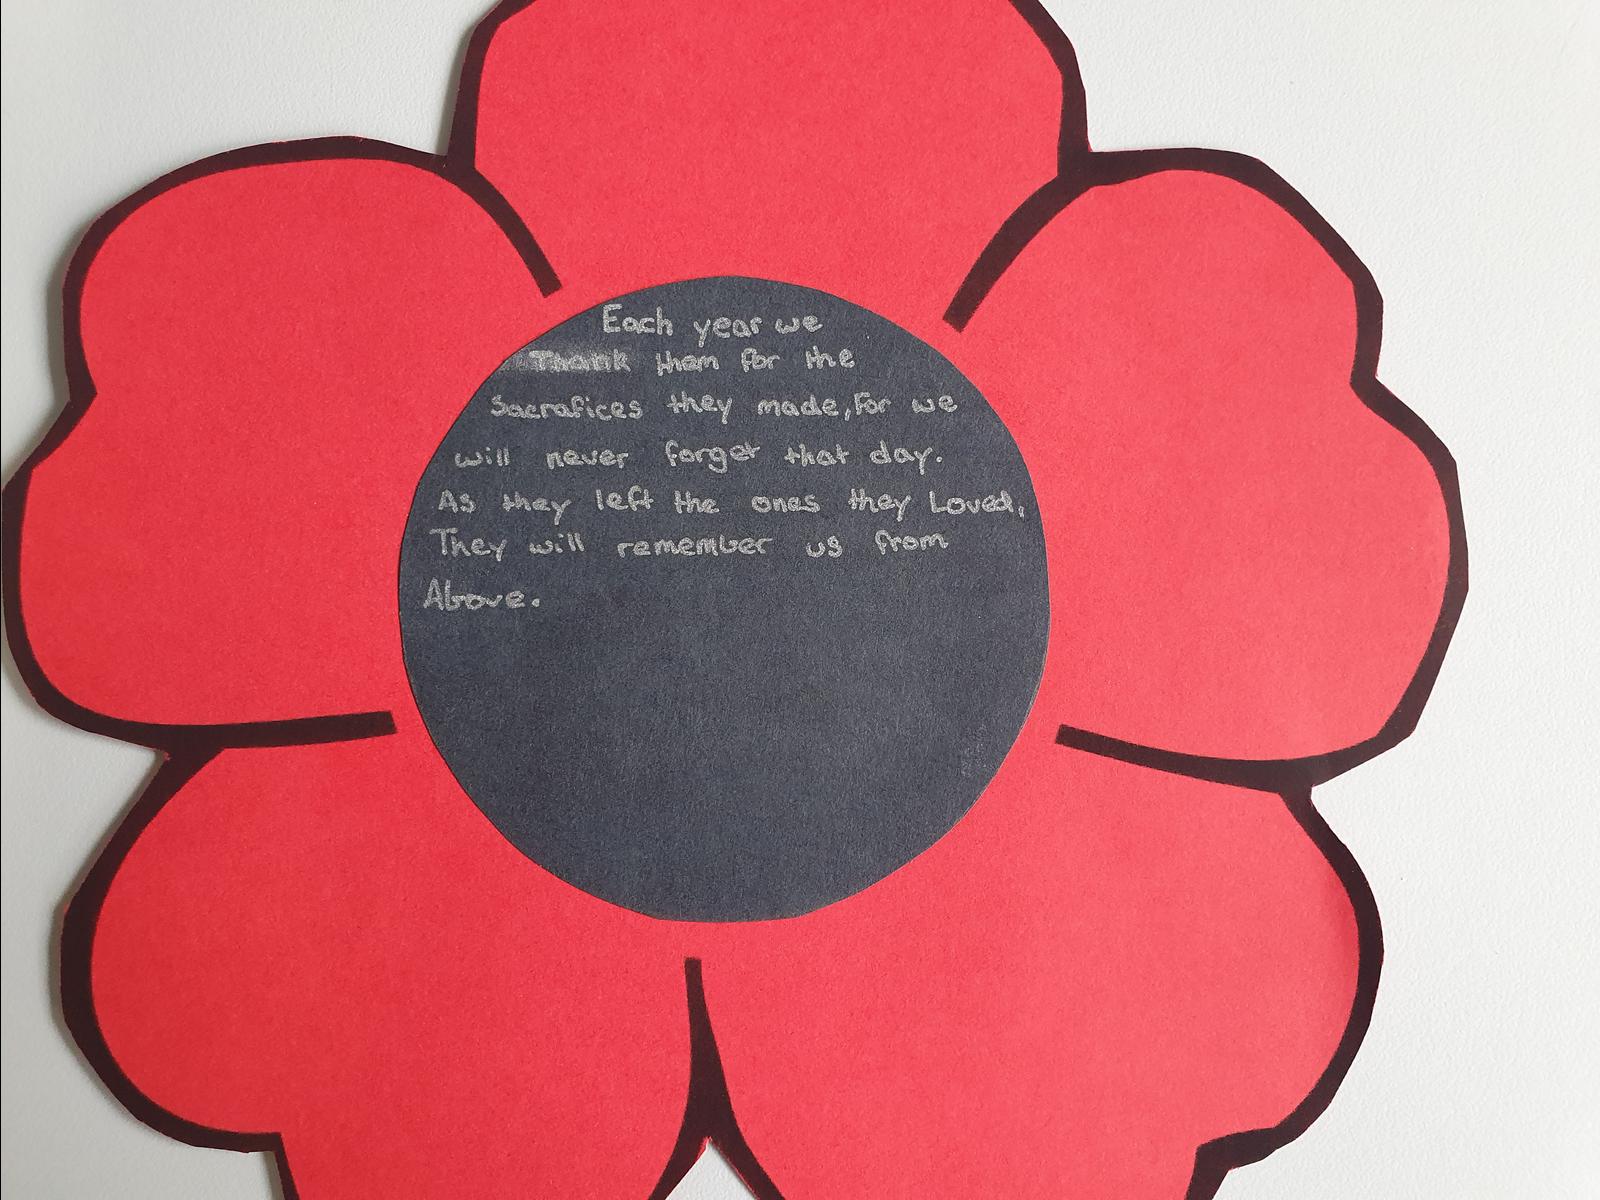 Each year we
Thank them for the
Sacrafices they made, For we
will never forget that day.
As they left the ones they Loved,
They will remember us from
Above.